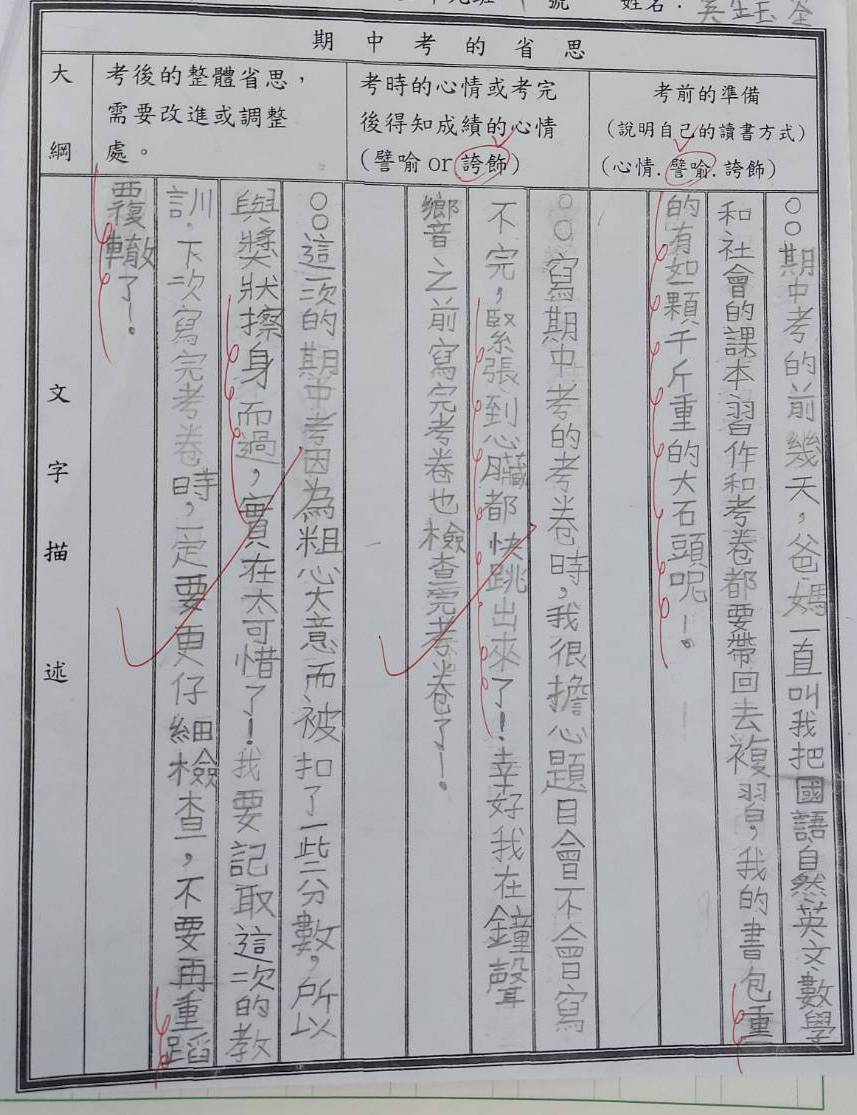 姓名：
期中考的省思
大綱
考前的準備
（說明自己的讀書方式）
（心情.譬喻.誇飾）
考時的心情或考完
後得知成績的心情
（譬喻 or 誇飾）
考後的整體省思，
需要改進或調整
處。
文字描述
○○期中考的前幾天，爸媽一直叫我把國語、自然、英文、數學
和社會的課本習作和考卷都要帶回去複習，我的書包重
的有如一顆千斤重的大石頭呢！。
○○寫期中考的考卷時，我很擔心題目會不會寫
不完，緊張到心臟都快跳出來了！幸好我在鐘聲
響之前寫完考卷也檢查完考卷了！。
○○這一次的期中考因為粗心大意而被扣了一些分數，所以
與獎狀擦身而過，實在太可惜了！我要記取這一次的教
訓，下次寫完考卷時，一定要更仔細檢查，不要再重蹈
覆轍了！。